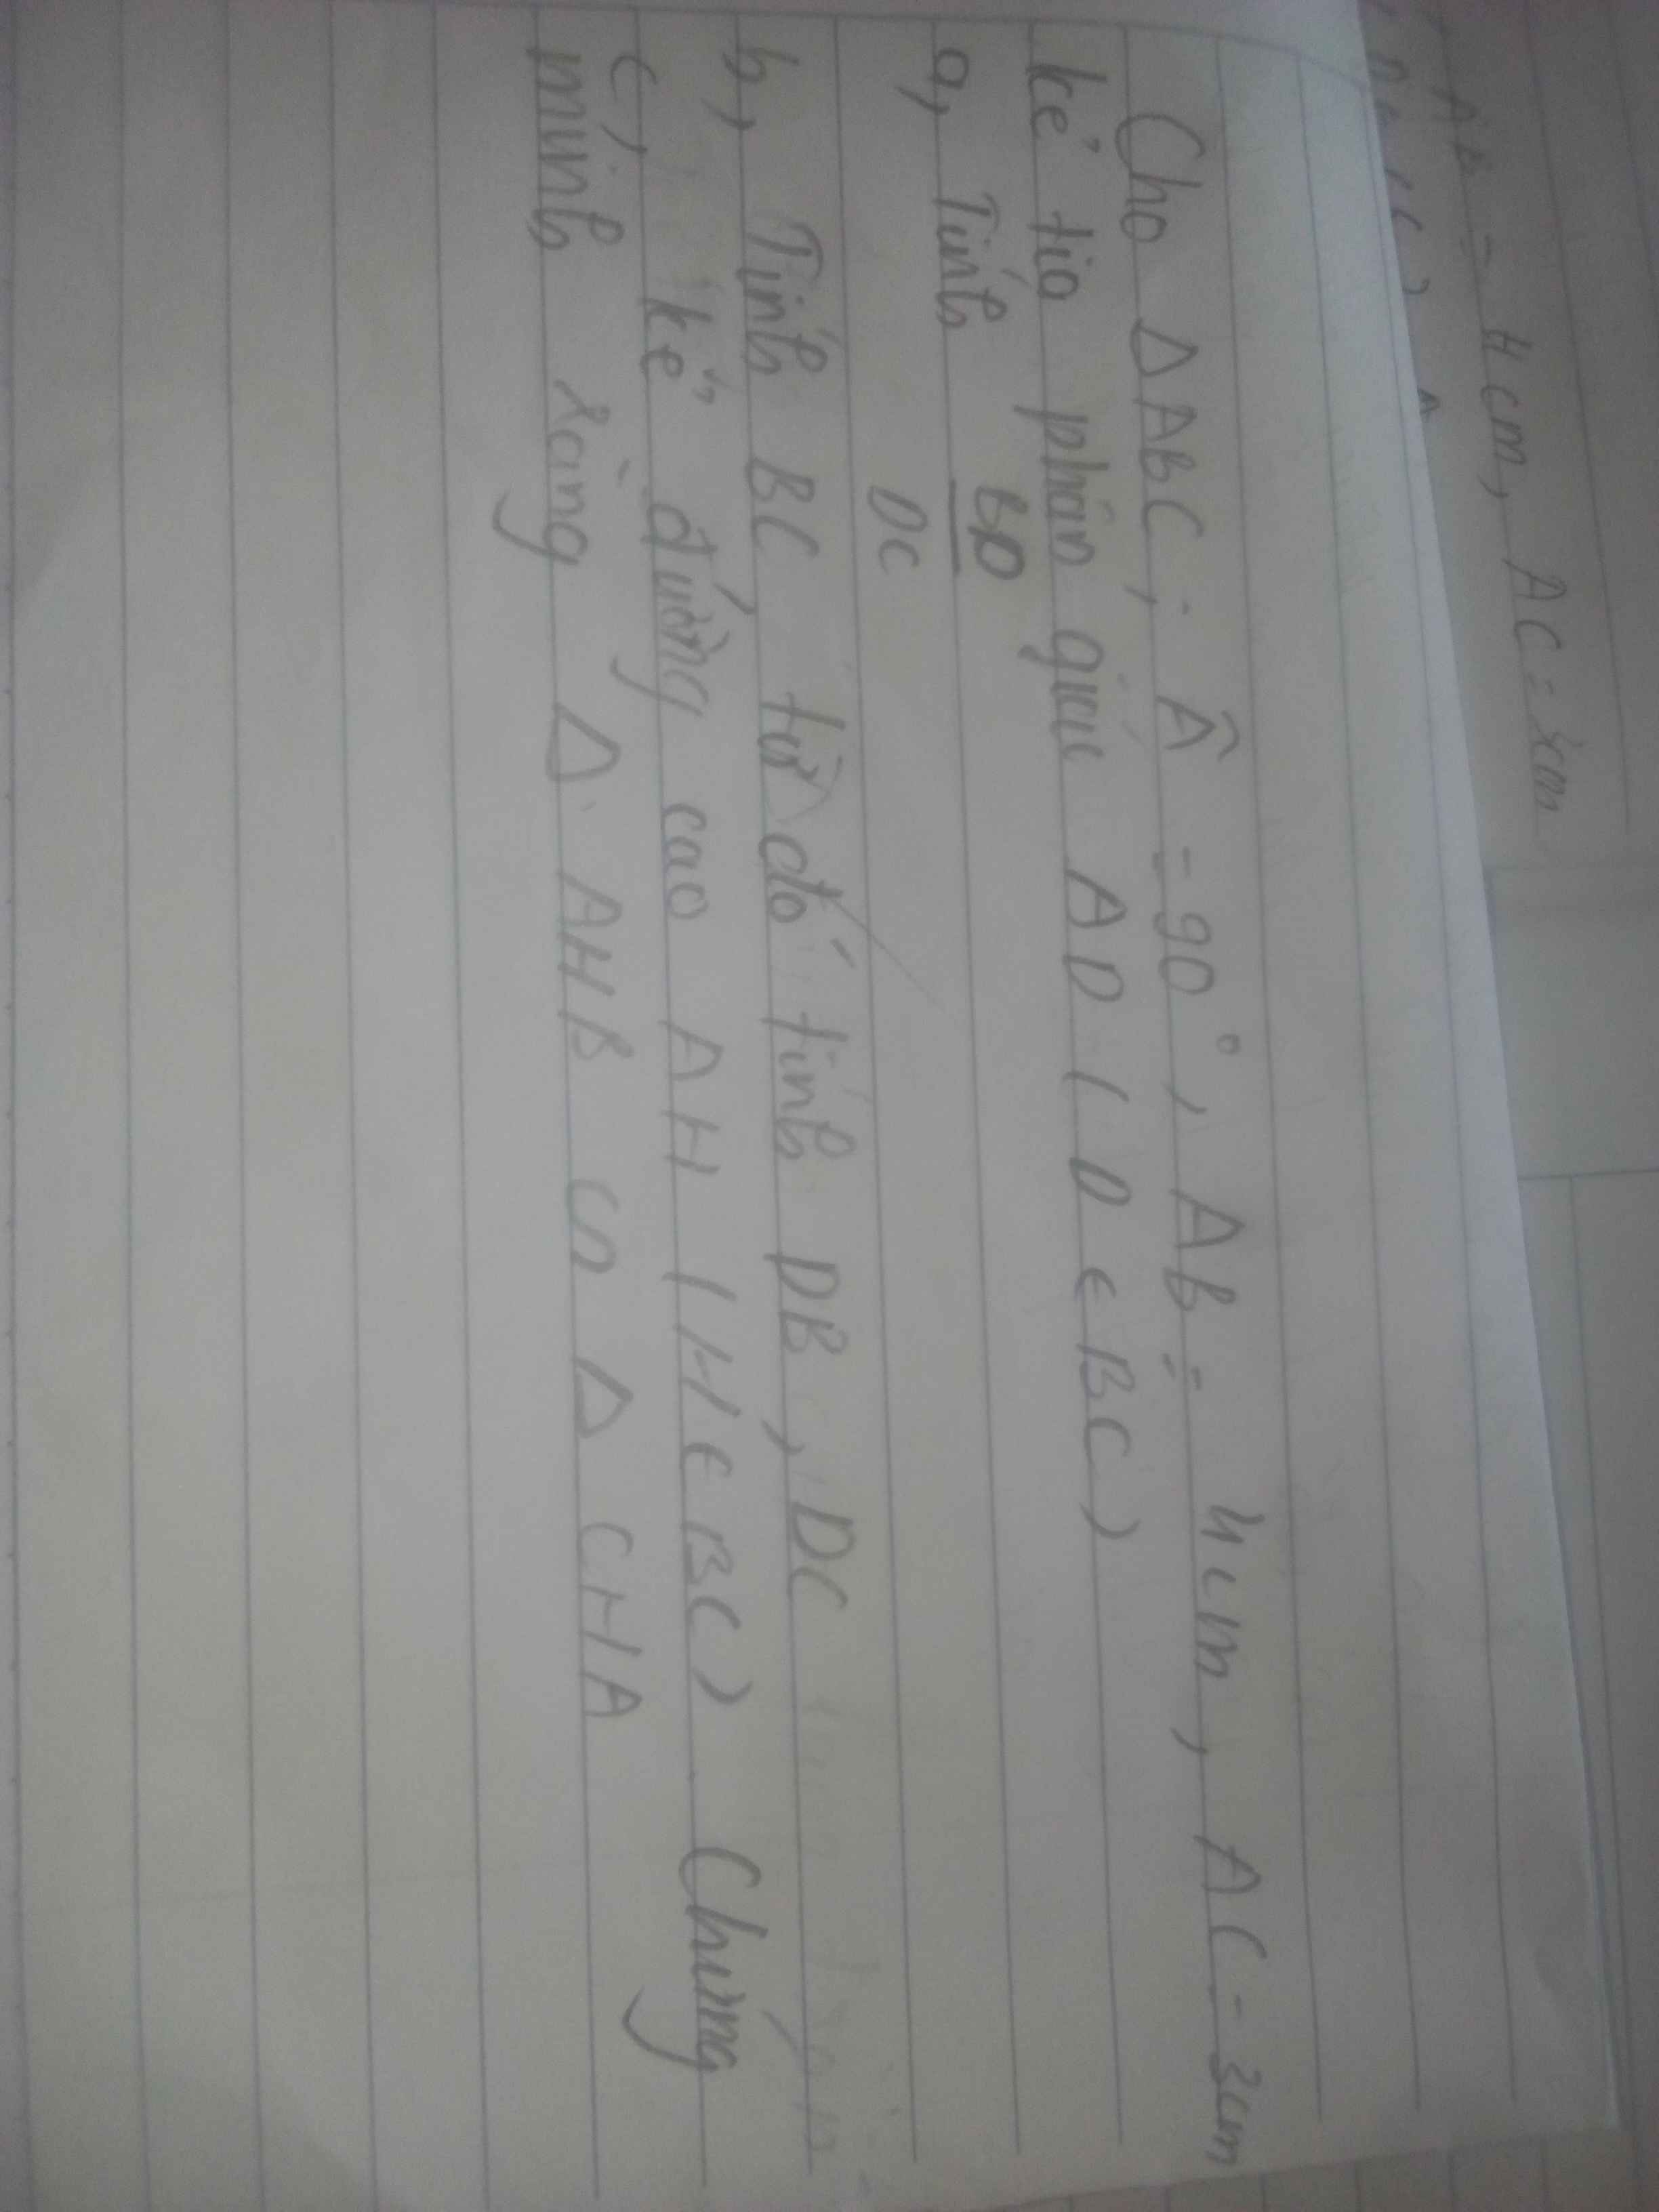 AB = 4cm, AC = 3cm
Cho ΔABC; Â = 90°, AB = 4cm, AC = 3cm
kẻ tia phân giác AD ( D ∈ BC)
a, Tính BD
DC
b, Tính BC từ đó tính DB, DC
c, kẻ đường cao AH ( H ∈ BC) Chứng
minh rằng Δ AHB ᔕ Δ CHA